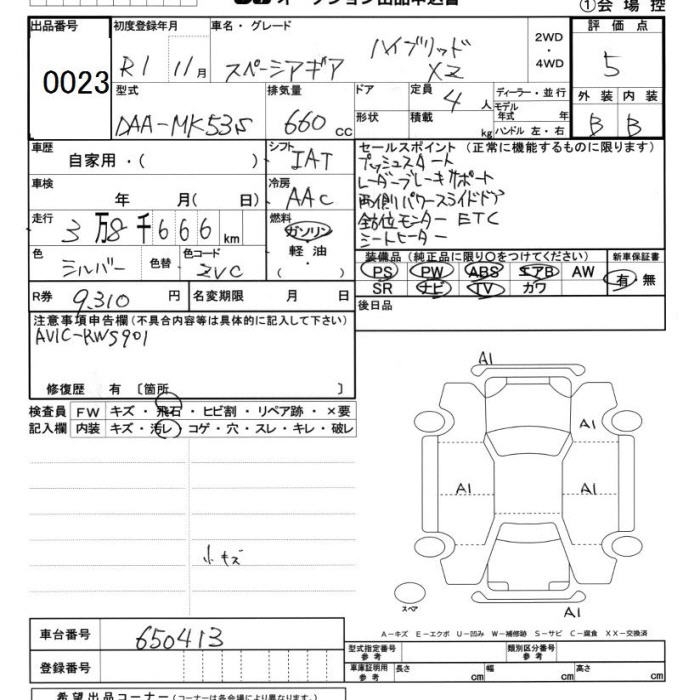 ①会場控
出品番号
0023
初度登録年月
R1 11月
車名・グレード
ハイブリッド
スペーシアギア XZ
2WD
・
4WD
評価点
5
外装 内装
B B
型式
DAA-MK53S
排気量
660 cc
ドア
形状
定員 4 人
積載 kg
ディーラー・並行
モデル
年式 年
ハンドル 左・右
車歴
自家用・( )
シフト
IAT
セールスポイント (正常に機能するものに限ります)
プッシュスタート
レーダーブレーキサポート
両側パワースライドドア
全方位モニター ETC
シートヒーター
車検
年 月( 日)
冷房
AAC
走行
3万8千666km
燃料
ガソリン
軽油
( ・ )
色
シルバー
色替
色コード
ZVC
装備品 (純正品に限り○をつけてください)
PS PW ABS エアB AW
SR ナビ TV カワ
新車保証書
有・無
R券 9,310 円
名変期限 月 日
後日品
注意事項申告欄(不具合内容等は具体的に記入して下さい)
AVIC-RWS901
修復歴 有 〔箇所 〕
検査員
記入欄
FW キズ・飛石・ヒビ割・リペア跡・×要
内装 キズ・汚レ・コゲ・穴・スレ・キレ・破レ
小キズ
A1
A1
A1
A1
A1
スペア
A-キズ E-エクボ U-凹み W-補修跡 S-サビ C-腐食 XX-交換済
車台番号
650413
登録番号
型式指定番号
参考
類別区分番号
参考
車庫証明用
参考
長さ cm
幅 cm
高さ cm
希望出品コーナー(コーナーは各会場により異なります)